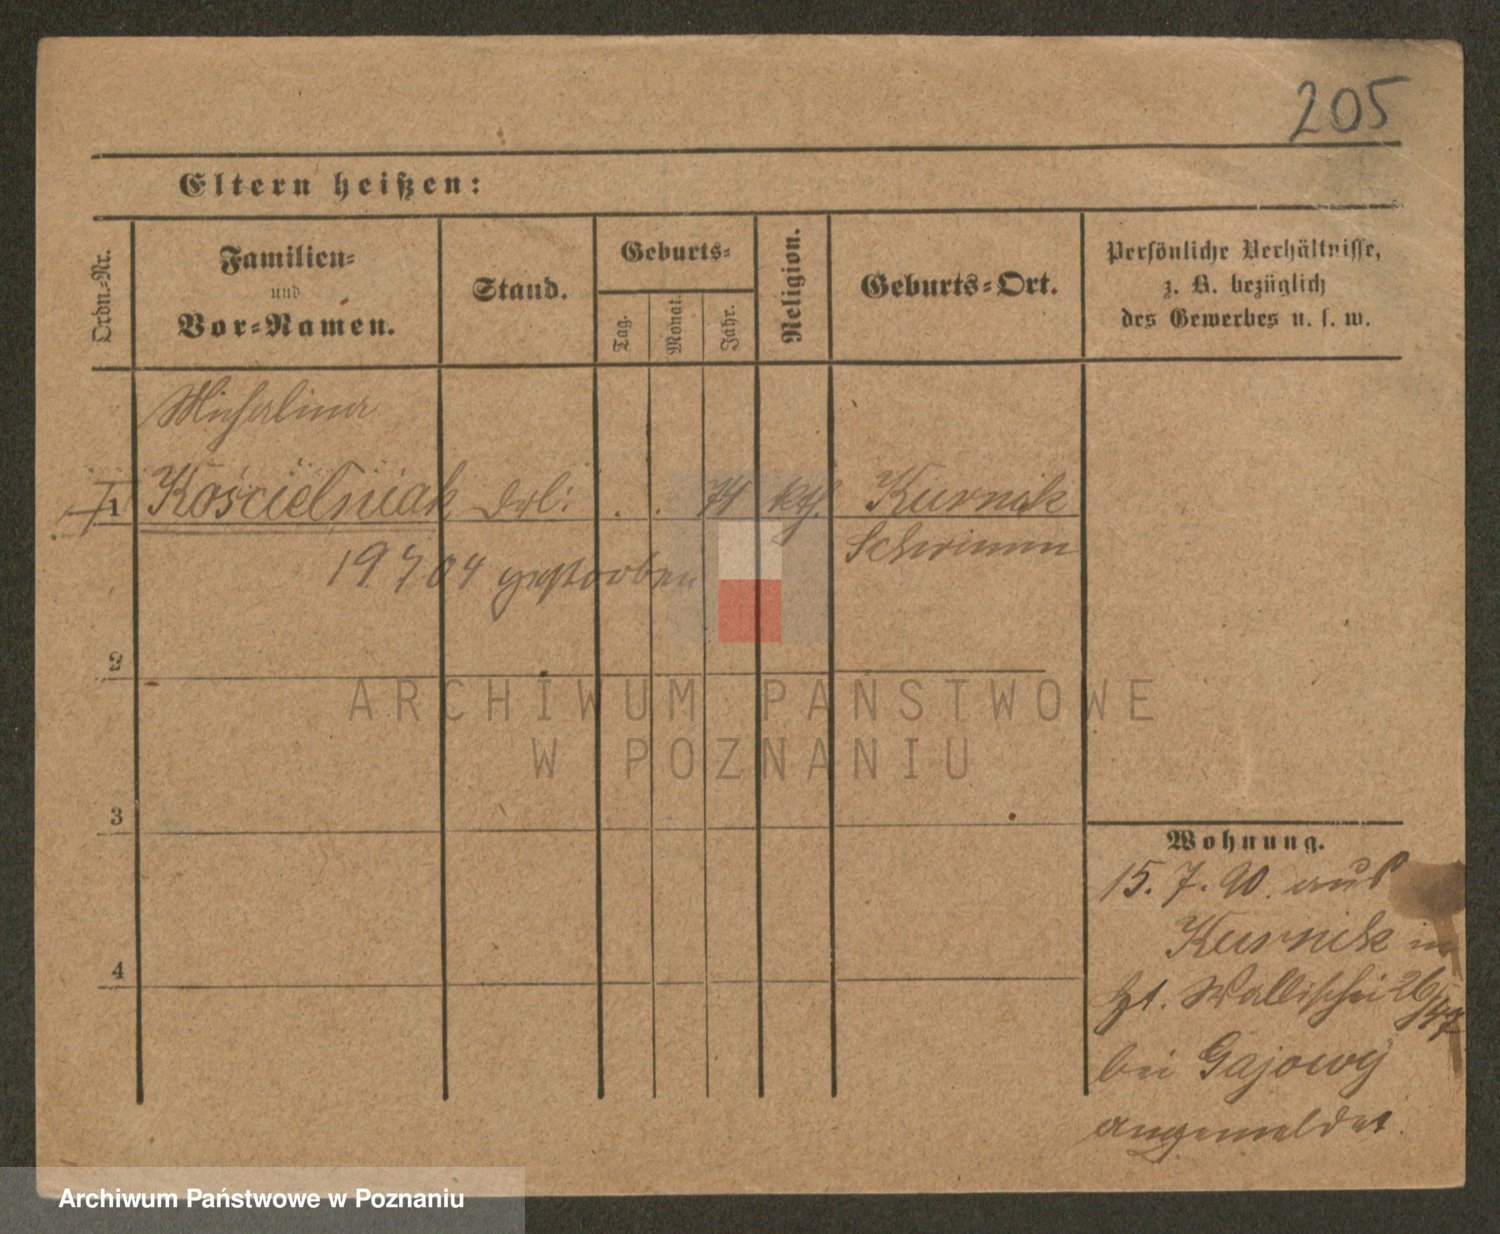 205
Eltern heißen:
Ordn.-Nr.
Familien-
und
Vor-Namen.
Stand.
Geburts-
Tag.
Monat.
Jahr.
Religion.
Geburts-Ort.
Persönliche Verhältnisse,
z. B. bezüglich
des Gewerbes u. s. w.
Michalina
1 Kościelniak . . 74 kth. Kurnik
Schrimm
19 7 04 gestorben
2
3
4
Wohnung.
15. 7. 90. aus
Kurnik in
Wallischei 26/
bei Gajowy
angemeldet.
ARCHIWUM PAŃSTWOWE
W POZNANIU
Archiwum Państwowe w Poznaniu